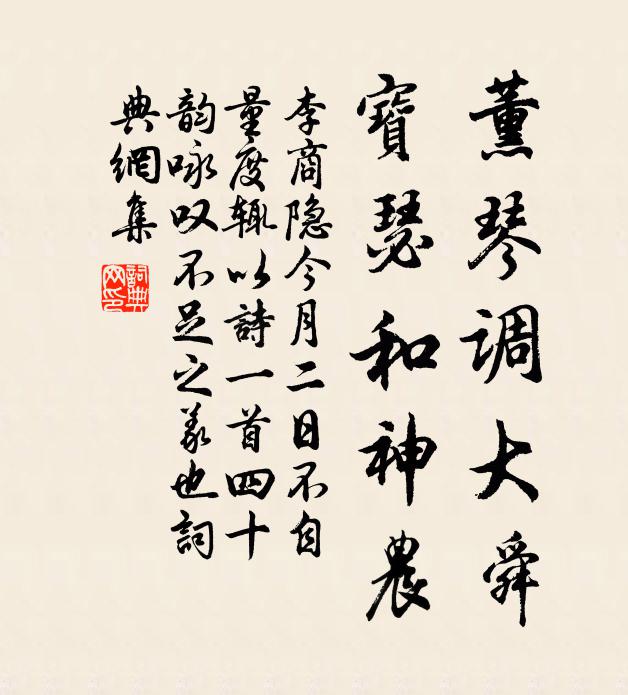 薰琴調大舜
寶瑟和神農
李商隐今月二日不自
量度輒以詩一首四十
韵咏叹不足之義也詞
典網集
詞典
网印